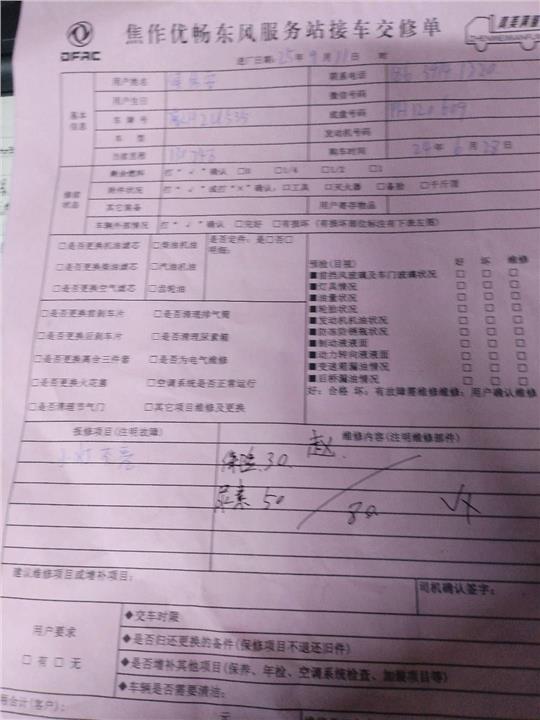 焦作优畅东风服务站接车交修单
DFAC
进厂日期: 25年 9月 11日 时
基本信息
用户姓名 联系电话
用户生日 微信号码
车牌号 底盘号码
车型 发动机号码
当前里程 购车时间 24年 6月 28日
接修状态
剩余燃料 打"√"确认 □0 □1/4 □1/2 □1
附件状况 打"√"或打"×"确认: □工具 □灭火器 □备胎 □千斤顶
其它装备 用户寄存物品
车辆外部情况 打"√"确认 □完好 □有损坏(有损坏部位标注在下表左图)
□是否更换机油滤芯 □柴油机油 是否定件: 是□否□
明细:
□是否更换柴油滤芯 □汽油机油
□是否更换空气滤芯 □齿轮油
预检(目视) 好 坏 维修
■前挡风玻璃及车门玻璃状况 □ □ □
■灯具情况 □ □ □
■油量状况 □ □ □
■轮胎状况 □ □ □
■发动机机油状况 □ □ □
■防冻防锈液状况 □ □ □
■制动液液面 □ □ □
■动力转向液液面 □ □ □
■变速箱漏油情况 □ □ □
■后桥漏油情况 □ □ □
好: 合格 坏: 有故障需维修维修: 用户确认维修
□是否更换前刹车片 □是否清理排气筒
□是否更换后刹车片 □是否清理尿素箱
□是否更换离合三件套 □是否为电气维修
□是否更换火花塞 □空调系统是否正常运行
□是否清理节气门 □其它项目维修及更换
报修项目(注明故障) 维修内容(注明维修部件)
小灯不亮
保险 30 赵
尿素 50
80
建议维修项目或增补项目:
司机确认签字:
用户要求
□有 □无
◆交车时限
◆是否归还更换的备件(保修项目不退还旧件)
◆是否增补其他项目(保养、年检、空调系统检查、加装项目等)
◆车辆是否需要清洁:
用合计(客户): 元